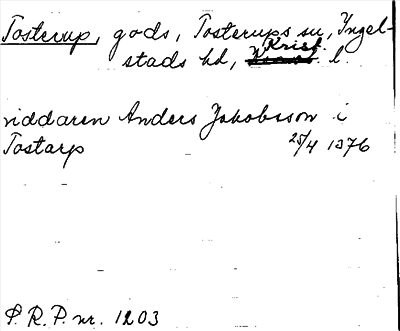 Tosterup, gods, Tosterups sn, Ingel-
stads hd, Krist. l.
riddaren Anders Jakobsson i
Tostarp 25/4 1376
P. R. P. nr. 1203